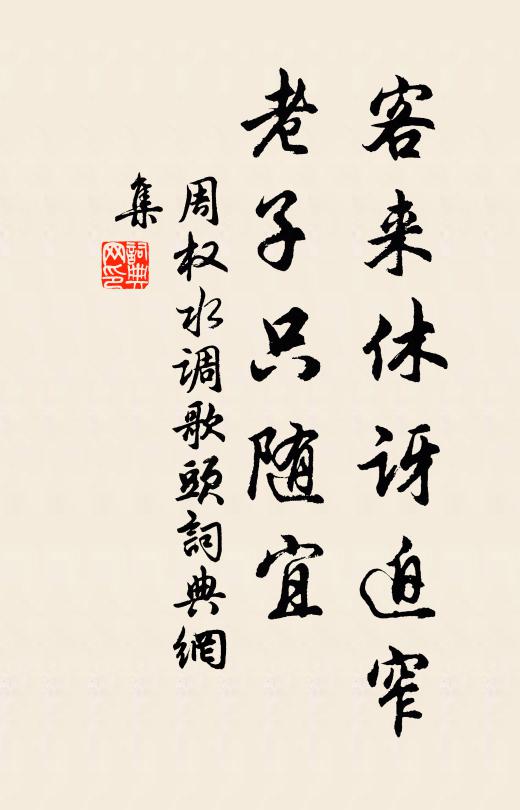 客来休讶迫窄
老子只随宜
周权水调歌頭詞典網
集
詞典
网印